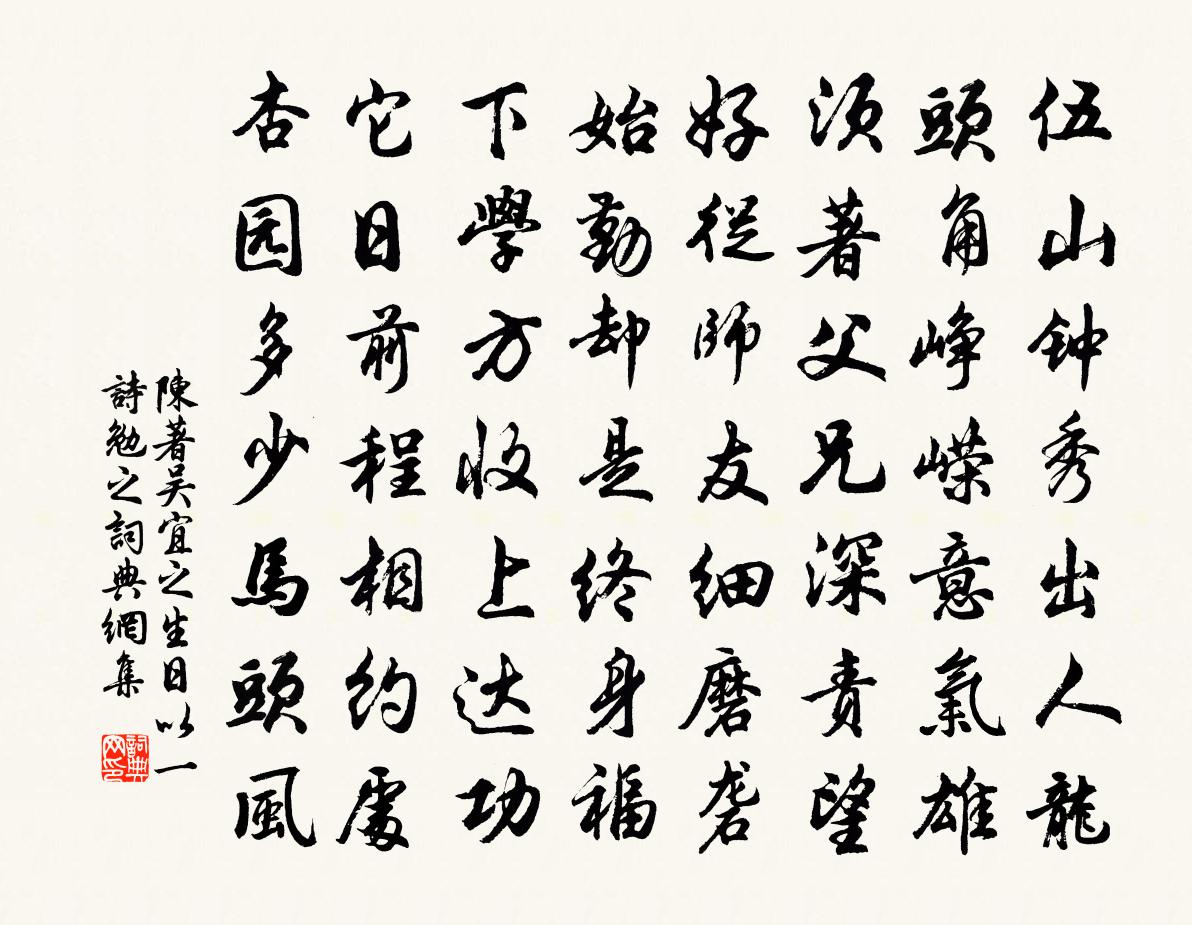 伍山钟秀出人龍
頭角峥嵘意氣雄
須著父兄深責望
好從師友细磨砻
始勤却是终身福
下學方收上达功
它日前程相约處
杏园多少馬頭風
陳著吴宜之生日以一
詩勉之詞典網集
詞典
网印